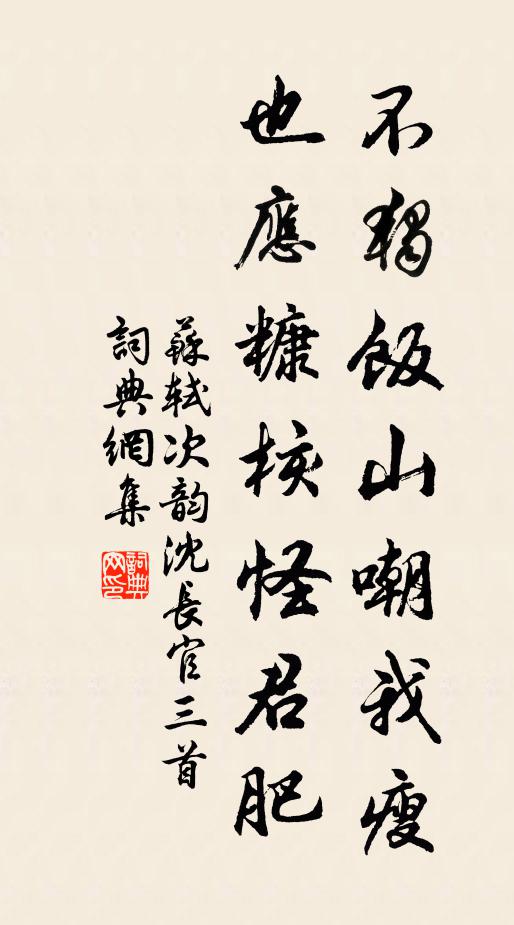 不獨飯山嘲我瘦
也應糠核怪君肥
蘇軾次韵沈長官三首
詞典網集
詞典網印